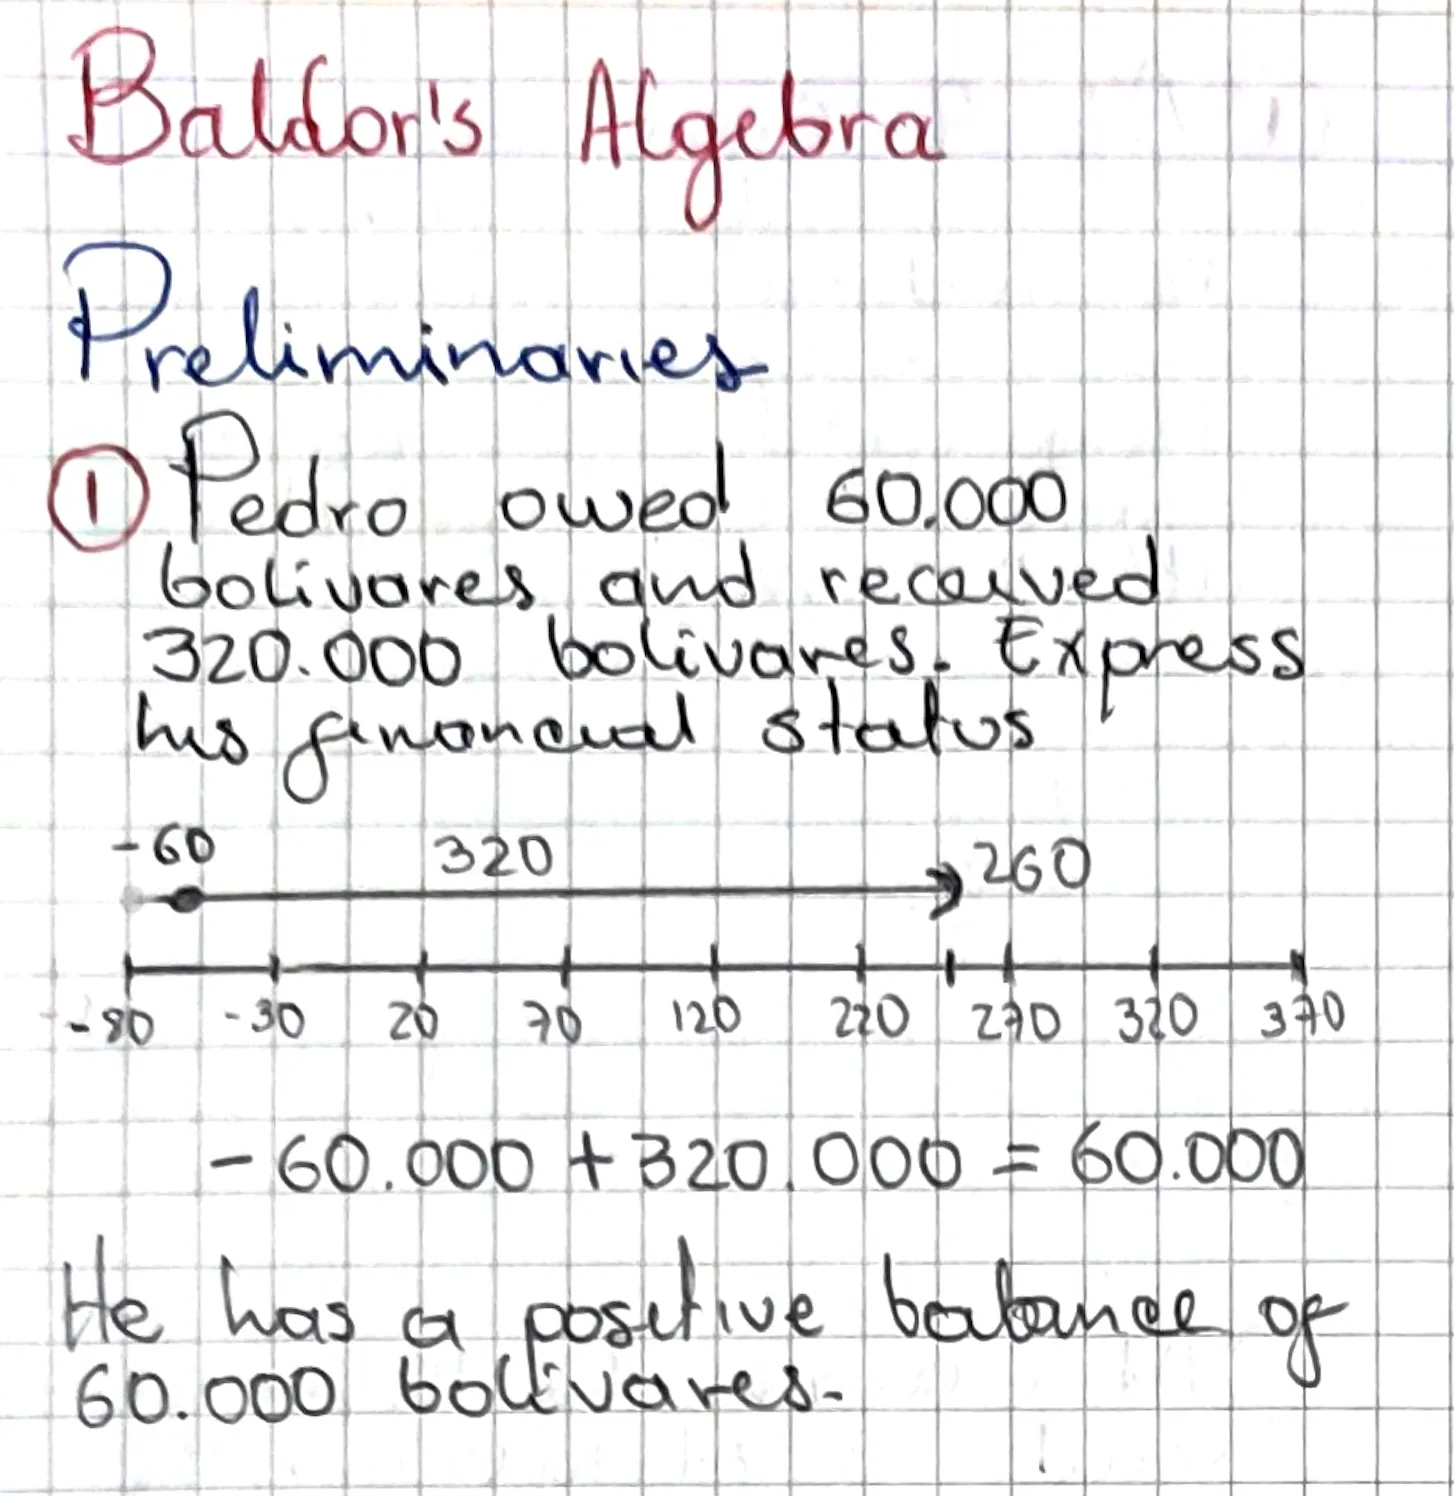 Baldor's Algebra
Preliminaries
1 Pedro owed 60.000
bolivares and received
320.000 bolivares. Express
his financial status
-60 320 260
-80 -30 20 70 120 220 270 320 370
-60.000 + 320.000 = 60.000
He has a positive balance of
60.000 bolivares.